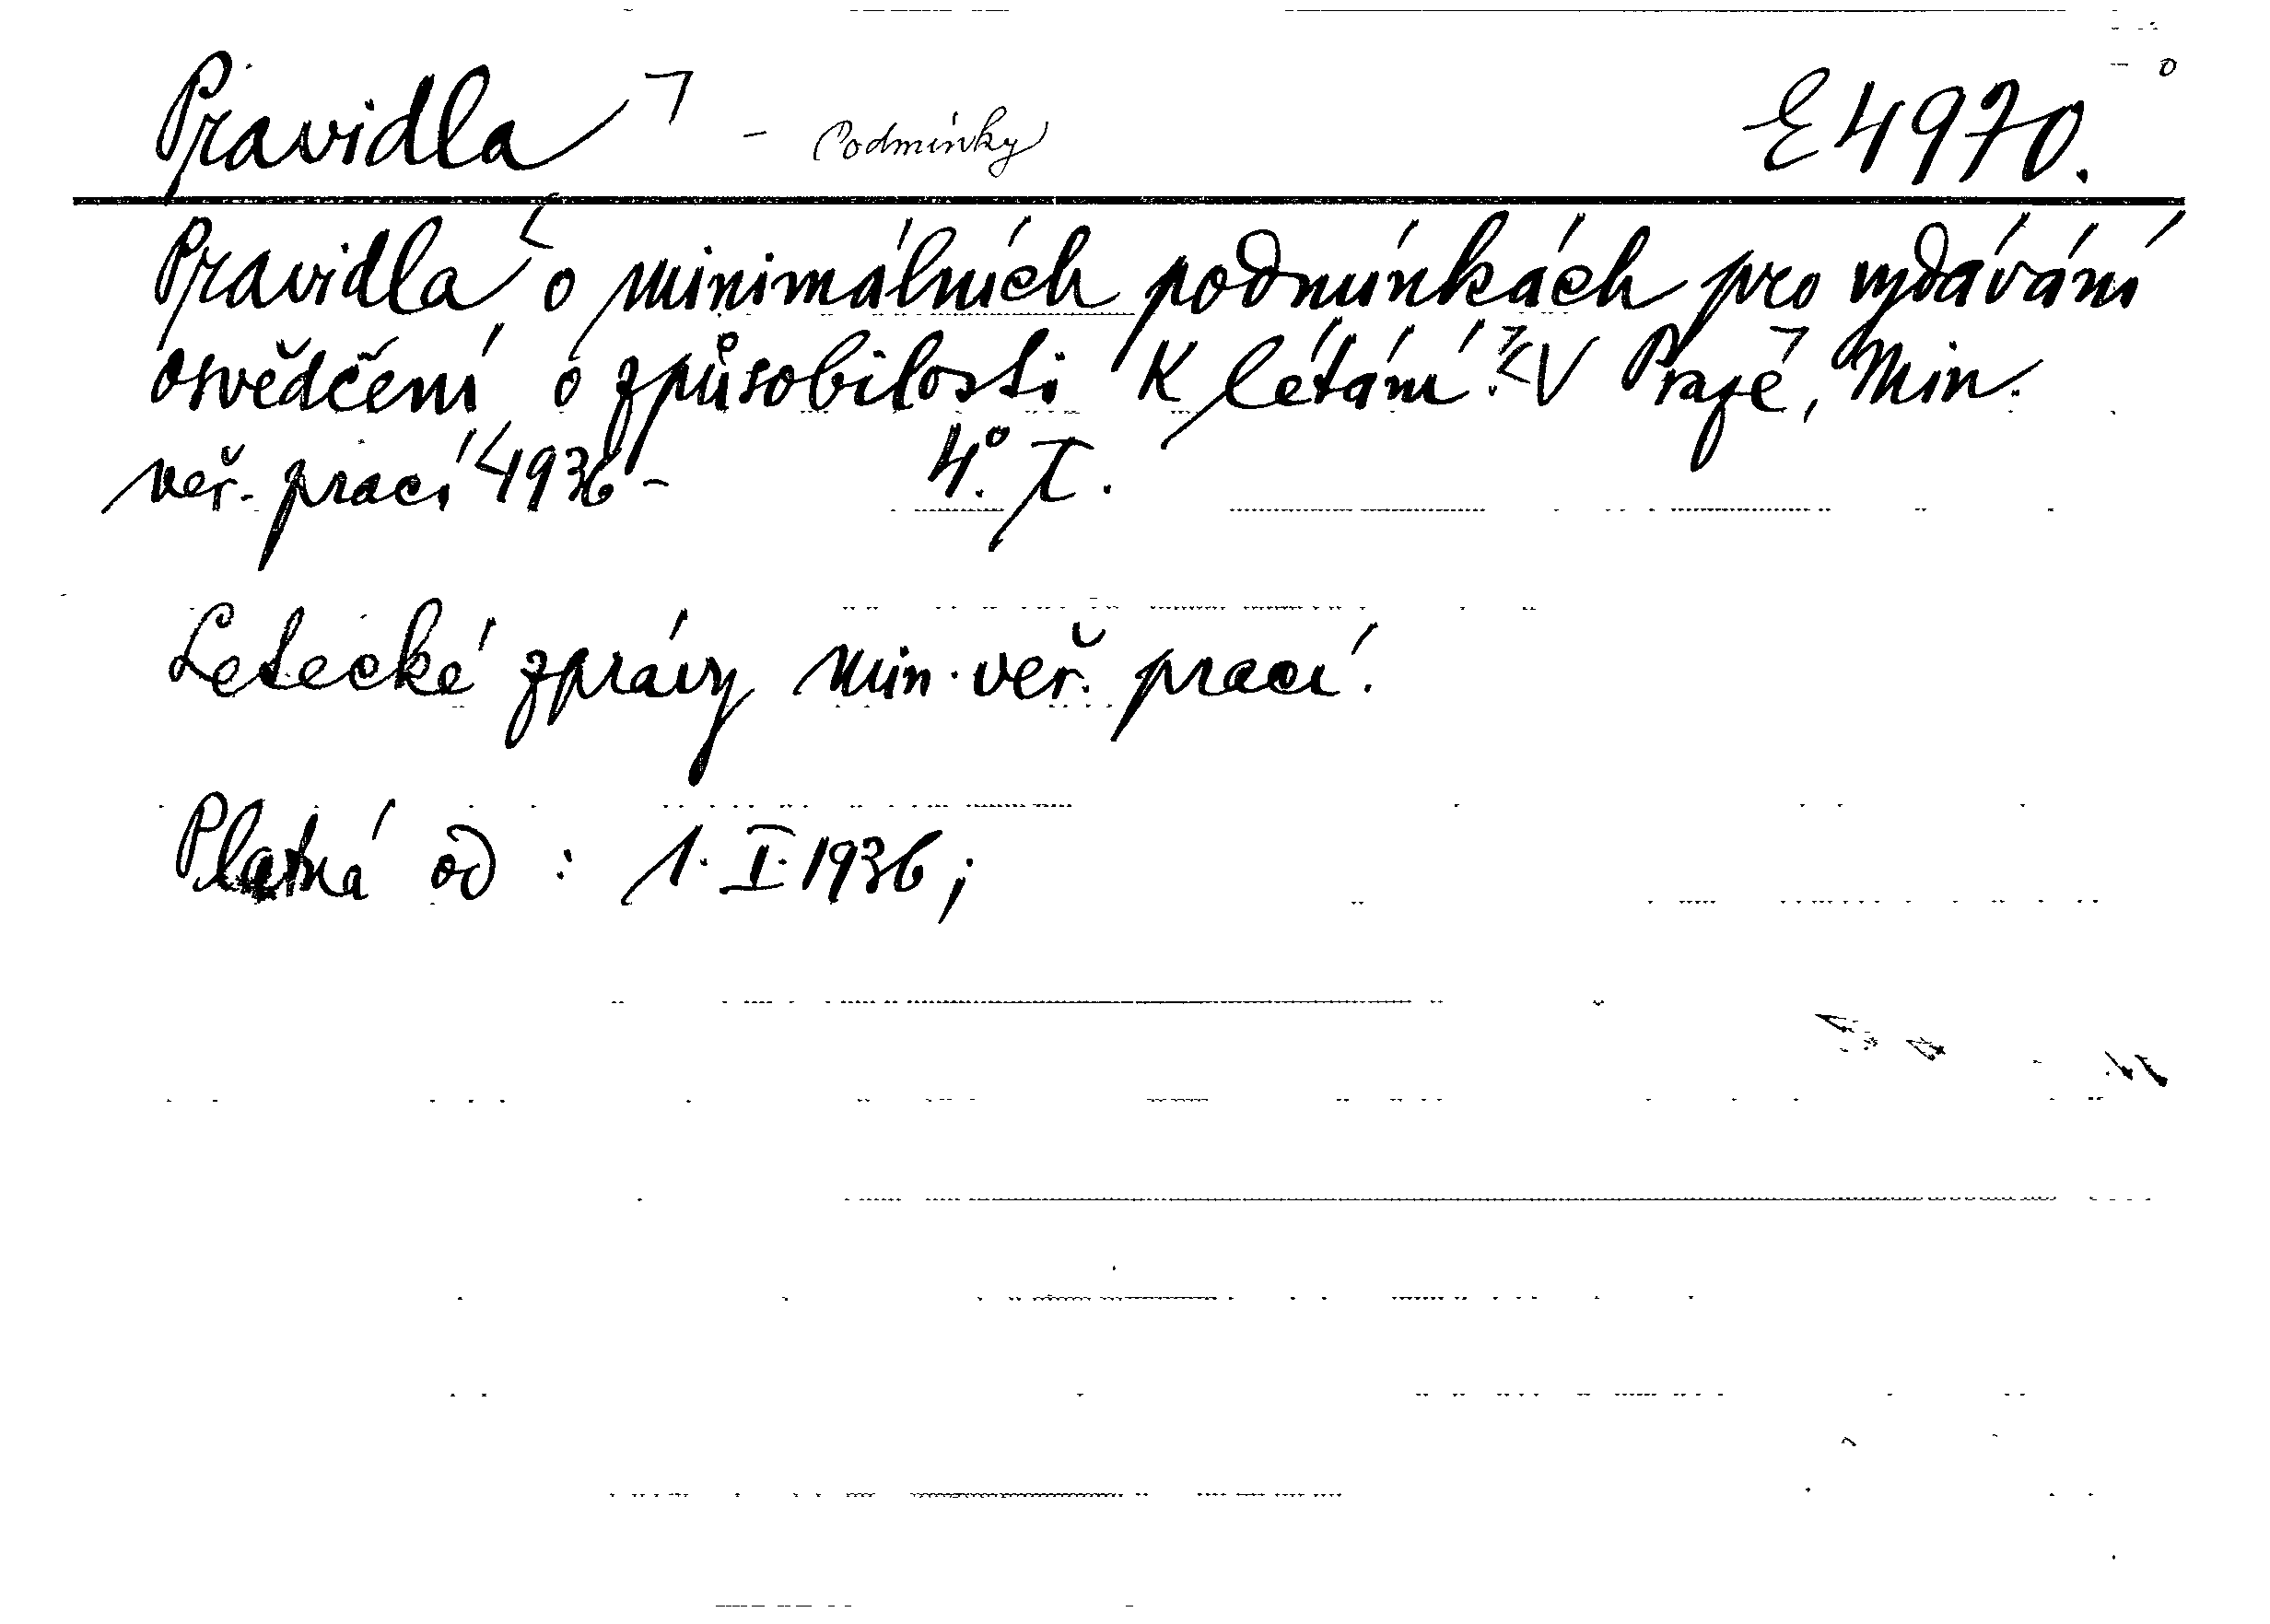 Pravidla - Podmínky E 4970.
Pravidla o minimálních podmínkách pro vydávání
osvědčení o způsobilosti k létání. V Praze, Min.
veř. prací 1936 - 4°. I.
Letecké zprávy min. veř. prací.
Platná od : 1. I. 1936;